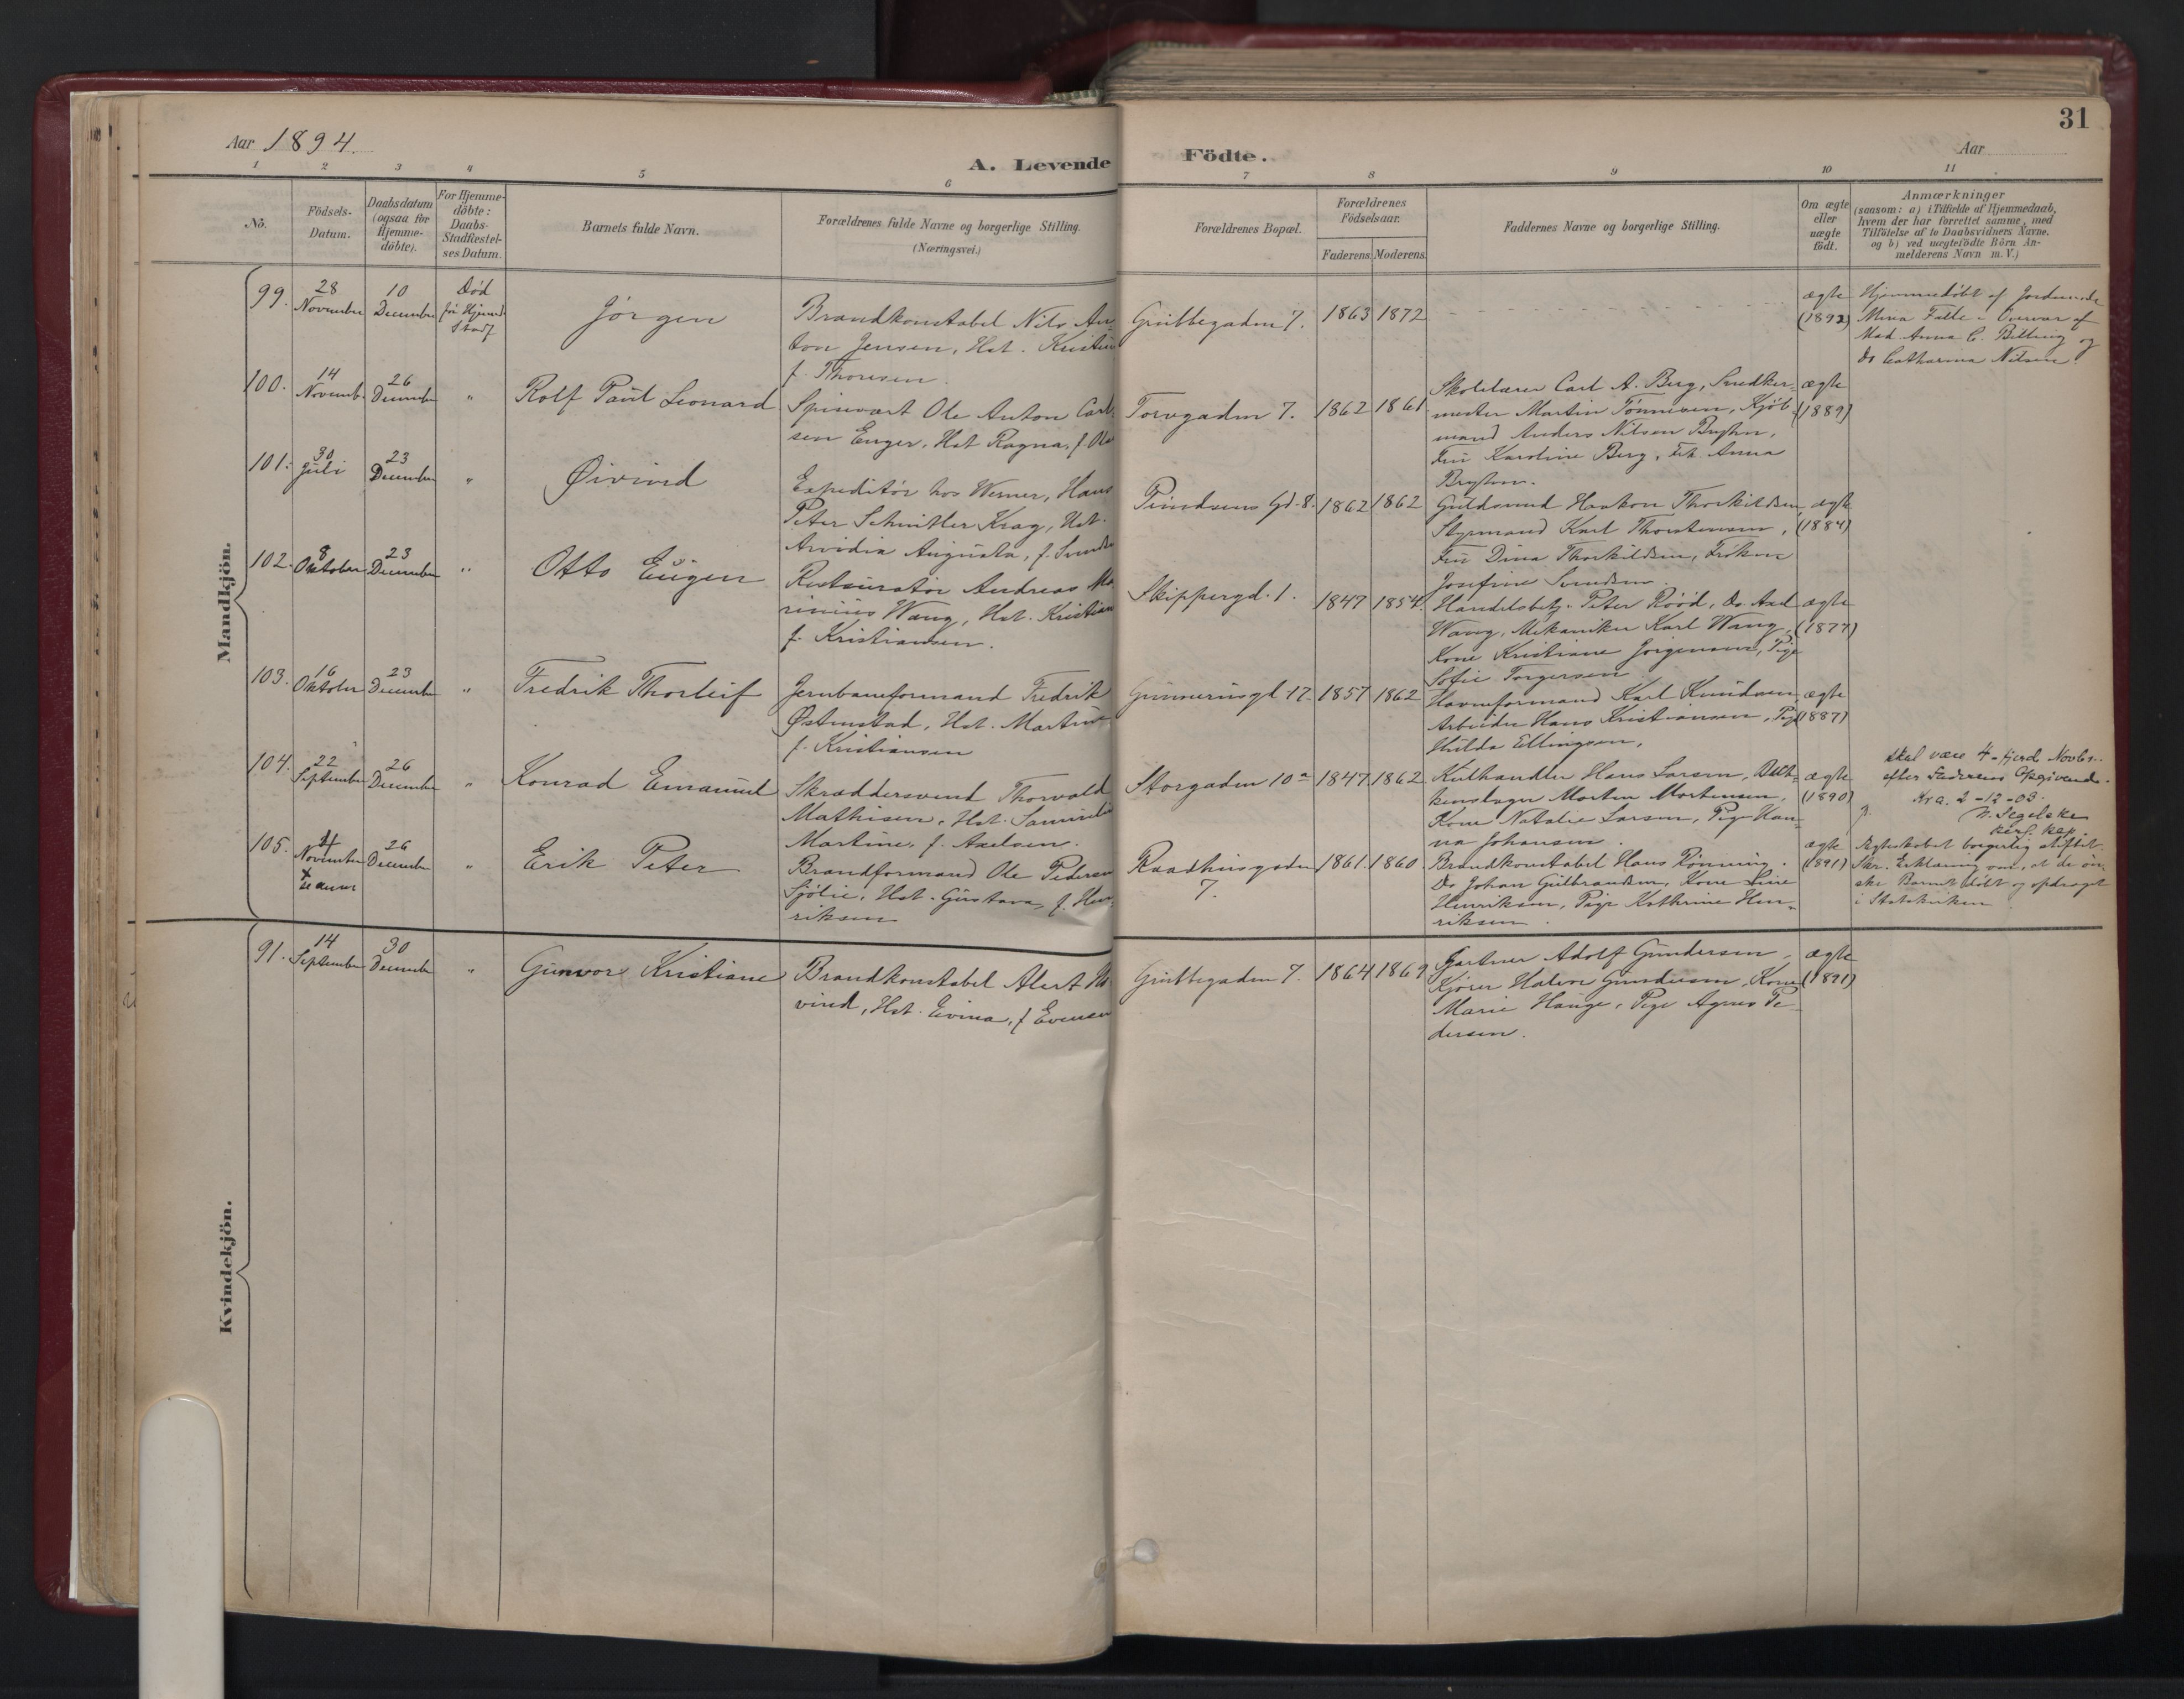 31
Aar 1894.
A. Levende Födte.
Aar
1 2 3 4 5 6 7 8 9 10 11
No.
Födsels-Datum.
Daabsdatum (ogsaa for Hjemme-döbte).
For Hjemme-döbte: Daabs-Stadfæstel-ses Datum.
Barnets fulde Navn.
Forældrenes fulde Navne og borgerlige Stilling.
(Næringsvei.)
Forældrenes Bopæl.
Forældrenes Födselsaar.
Faderens. Moderens.
Faddernes Navne og borgerlige Stilling.
Om ægte eller uægte födt.
Anmærkninger
(saasom: a) i Tilfælde af Hjemmedaab,
hvem der har forrettet samme, med
Tilföielse af to Daabsvidners Navne,
og b) ved uægtefödte Börn An-
melderens Navn m. V.)
Mandkjön.
99. 28 November 10 December Död før Hjemd. Stadf. Jörgen
Brandkonstabel Nils An-
ton Jensen, Hst. Kristine
f. Thoresen.
Grubbegaden 7. 1863 1872
ægte (1892)
Hjemmedøbt af Jordmoder
i Overvær af
Mad. Anna C. Billing og
Do Catharina Nilsen.
100. 14 Novemb. 26 December " Rolf Paul Leonard
Spisevært Ole Anton Carl-
sen Enger, Hst. Ragna, f. Ols
Torvgaden 7. 1862 1861
Skolelærer Carl A. Berg, Snedker-
mester Martin Tönnesen, Kjöb-
mand Anders Nilsen
Fru Karoline Berg, Frk. Anna
ægte (1889)
101. 30 Juli 23 December " Öivind
Expeditör hos Werner, Hans
Peter Schnitler Krag, Hst.
Arvidia Augusta, f. Svends
Gd. 8. 1862 1862
Guldsmed Haakon Thorkildsen
Styrmand Karl Thorstensen,
Fru Dina Thorkildsen, Fröken
Josefine Svendsen.
ægte (1884)
102. 8 Oktober 23 December " Otto Eugen
Restauratör Andreas Ma-
rinius Wang, Hst. Kristian
f. Kristiansen.
Skippergd. 1. 1847 1854.
Handelsbetj. Peter Rööd, Do. Axel
Wang, Mekaniker Karl Wang,
Kone Kristiane Jörgensen, Pige
Sofie Torgersen
ægte (1877)
103. 16 Oktober 23 December " Fredrik Thorleif
Jernbaneformand Fredrik
Östenstad, Hst. Martine
f. Kristiansen
Gunnerusgd. 17. 1857 1862
Havneformand Karl Knudsen,
Arbeider Hans Kristiansen, Pige
Hulda Ellingsen,
ægte (1887)
104. 22 September 26 December " Konrad Emanuel
Skræddersvend Thorvald
Mathisen, Hst.
Martine, f. Axelsen.
Storgaden 10a 1847. 1862
Kulhandler Hans Larsen,
Morten Mortensen,
Kone Natalie Larsen, Pige Han-
na Johansen.
ægte (1890)
skal være 4 - fjerd Novbr.
efter Faderens Opgivende.
Kra. 2-12-03.
N. Segelcke
105. 4 November 26 December " Erik Peter
Brandformand Ole Pedersen
Sjölie, Hst. Gustava, f. Hen-
riksen
Raadhusgaden 7. 1861. 1860.
Brandkonstabel Hans Rönning.
Do Johan Gulbrandsen, Kone Line
Henriksen, Pige Kathrine Hen-
riksen.
ægte (1891)
Ægteskabet borgerlig stiftet.
Skr. Erklæring om, at de ön-
ske Barnet døbt og opdraget
i Statskirken
Kvindekjön.
91. 14 September 30 December " Gunvor Kristiane
Brandkonstabel Alert
vind, Hst. Evina, f. Evensen
Grubbegaden 7. 1864 1869
Gartner Adolf Gundersen,
Kjörer Halvor Gundersen, Kone
Marie Hauge, Pige Agnes Pe-
dersen.
ægte (1891)